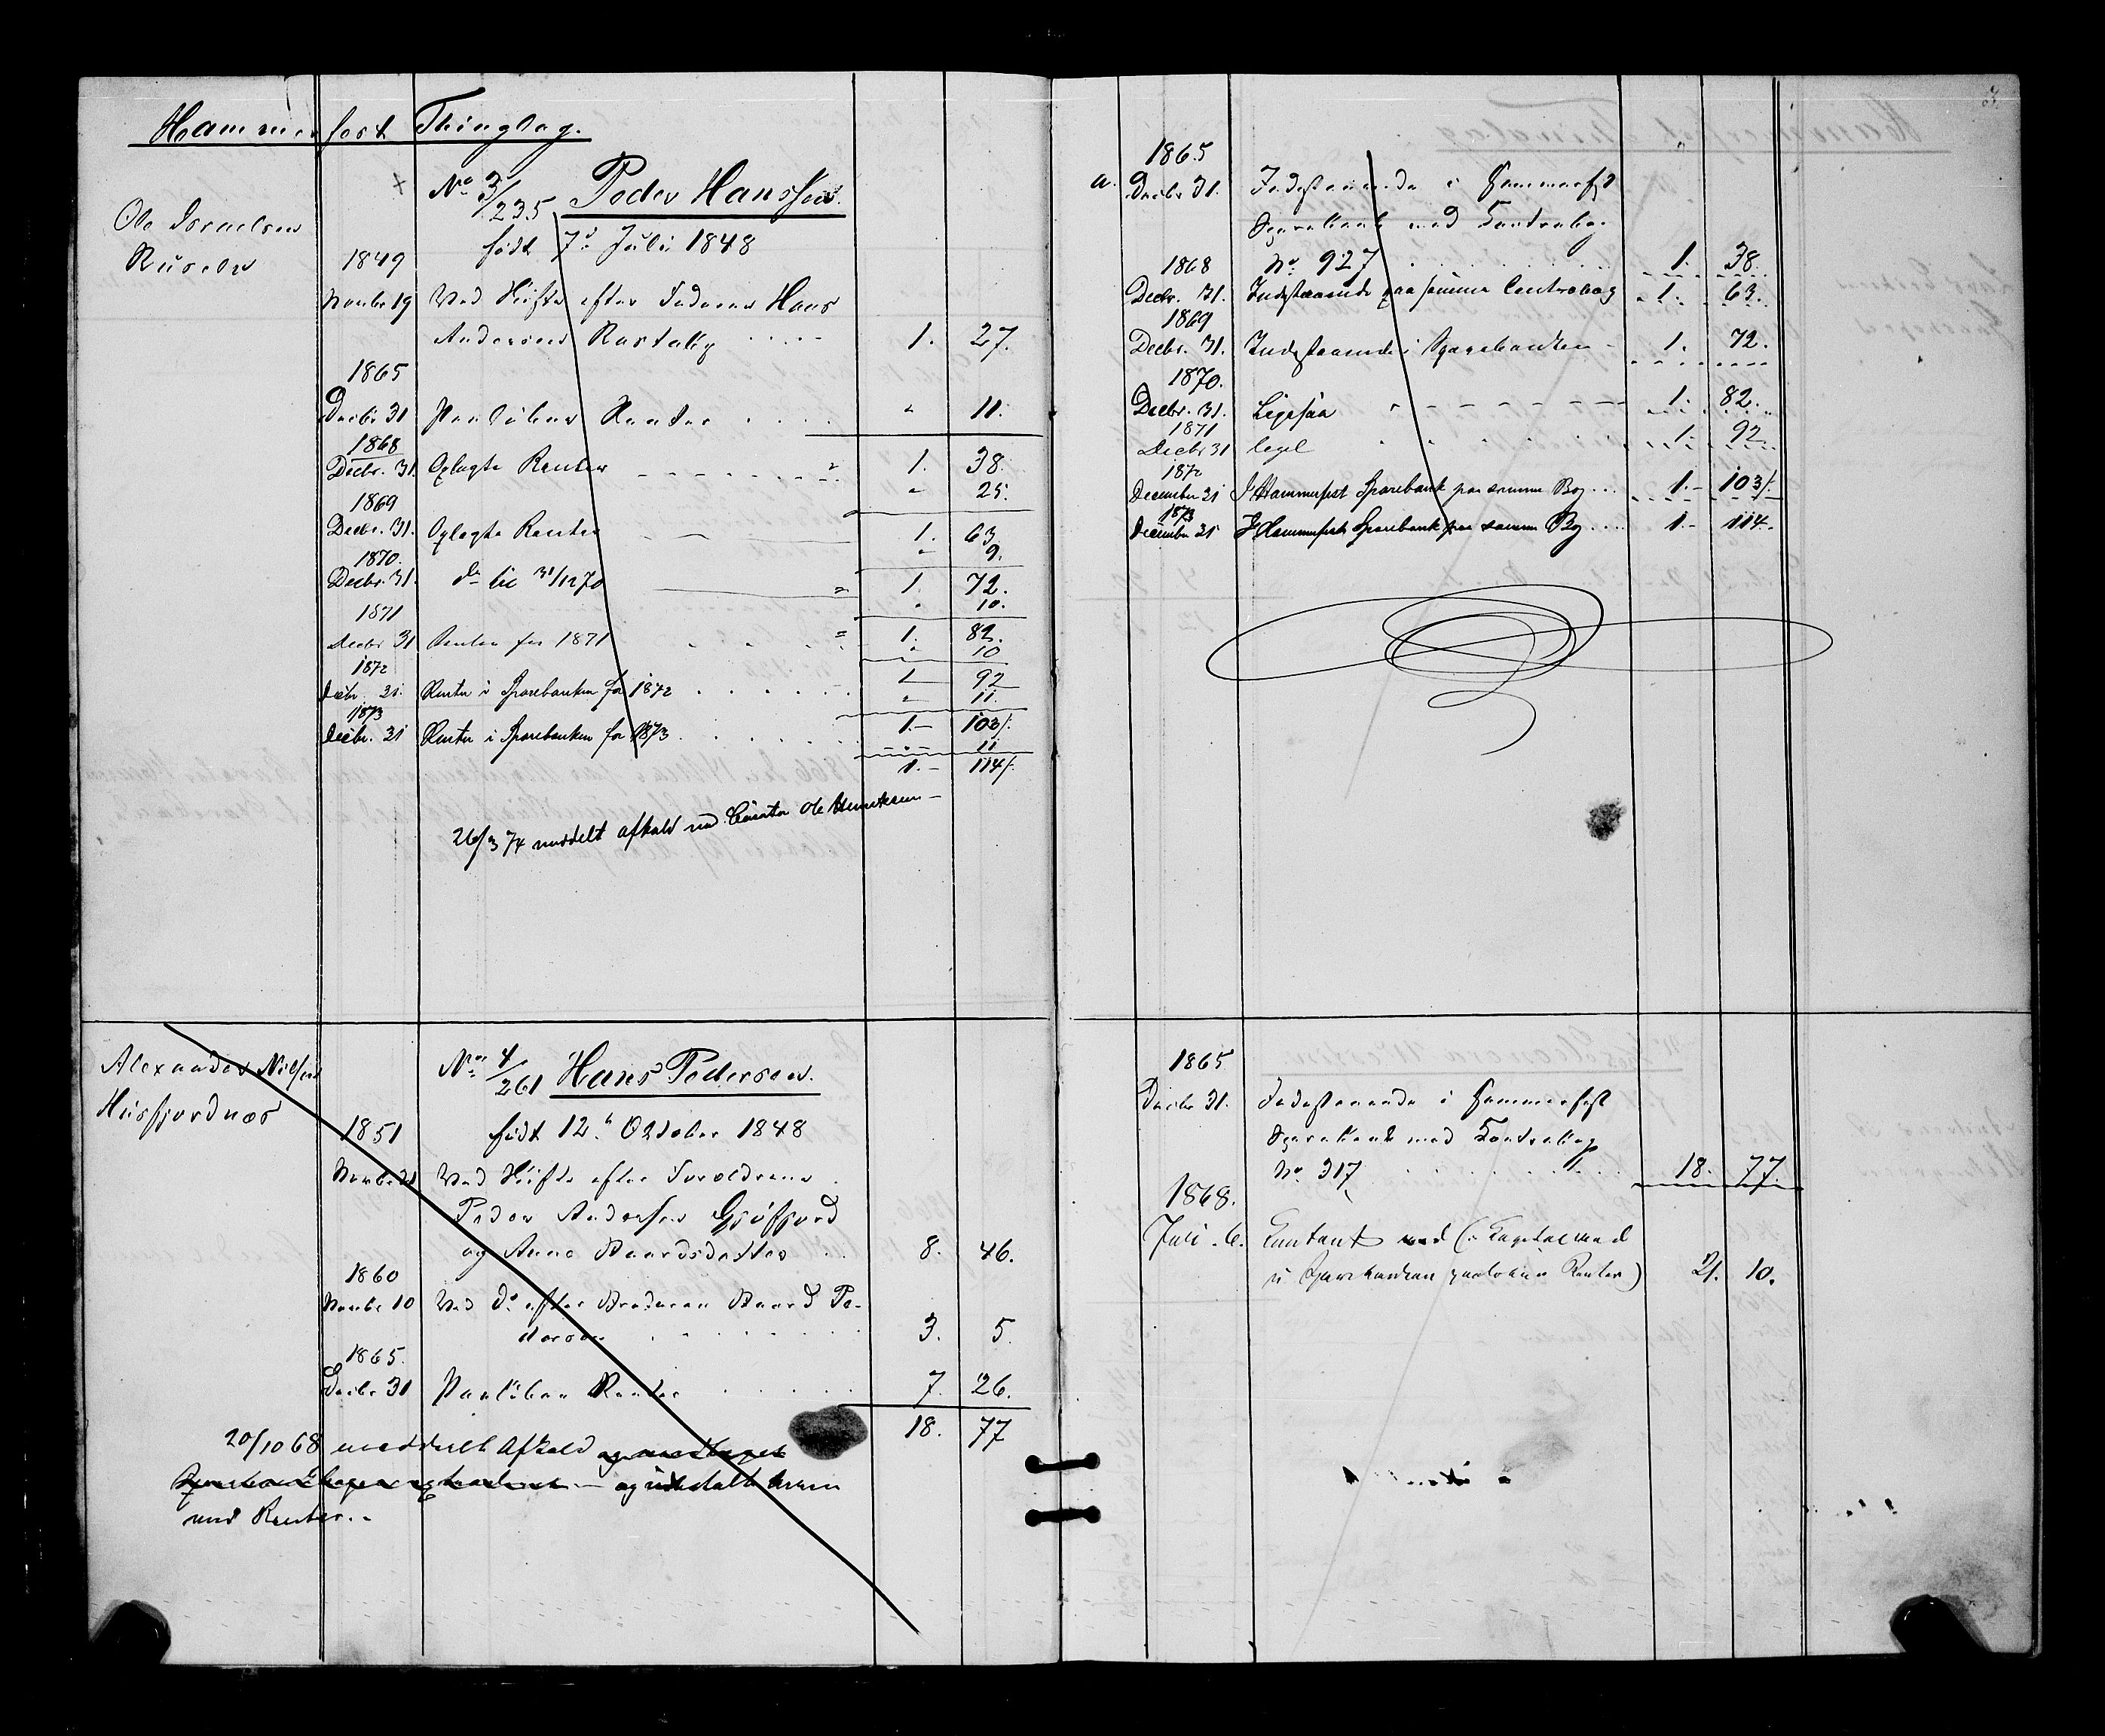 Hammerfest Thinglag.
Ole Israelsen
No 3/235 Peder Hanssen.
født 7d Juli 1848
1849
Novbr 19 Ved Skifte efter Faderen Hans
Andersen 1. 27.
1865
Decbr 31 Paaløbne Renter " 11.
1. 38.
1868
Decbr. 31. Oplagte Renter " 25.
1. 63.
1869
Decbr. 31. Oplagte Renter " 9.
1. 72.
1870.
Decbr. 31. do til 31/12 70 " 10.
1. 82.
1871
Decbr 31 Renter for 1871 " 10
1 92
1872
Decbr. 31. Renter i Sparebanken for 1872 " 11.
1.- 103/.
1873
Decbr. 31 Renter i Sparebanken for 1873 11
1.- 114/.
26/3 74 meddelt afkald med Curator Ole Henriksen
Alexander Nilsen
Husfjordnæs
No 4/261 Hans Pedersen.
født 12te October 1848
1851
Novbr 21 Ved Skifte efter Forældrene
Peder Andersen
og Anne Baardsdatter 8. 46.
1860
Novbr 10 Ved do efter Broderen Baard Pe-
dersen 3. 5.
1865.
Decbr 31 Paaløbne Renter 7. 26.
18. 77
20/10 68 meddelt Afkald og modtaget
og udbetalt
med Renter.
3.
1865
a. Decbr 31. Indestaaende i Hammerfest
Sparebank med Contrabog
No. 927 1. 38.
1868
Decbr. 31. Indestaaende paa samme Contrabog 1. 63.
1869
Decbr. 31. Indestaaende i Sparebanken 1. 72.
1870.
Decbr. 31. Ligesaa 1. 82.
1871
Decbr 31 1. 92.
1872
December 31 I Hammerfest Sparebank paa samme Bog 1.- 103/.
1873
December 31 I Hammerfest Sparebank paa samme Bog 1.- 114.
1865
Decbr 31. Indestaaende i Hammerfest
Sparebank med Contrabog
No. 317 18. 77.
1868.
Juli 6. Contant med (: Capital med
i Sparebanken paaløbne Renter) 21. 10.